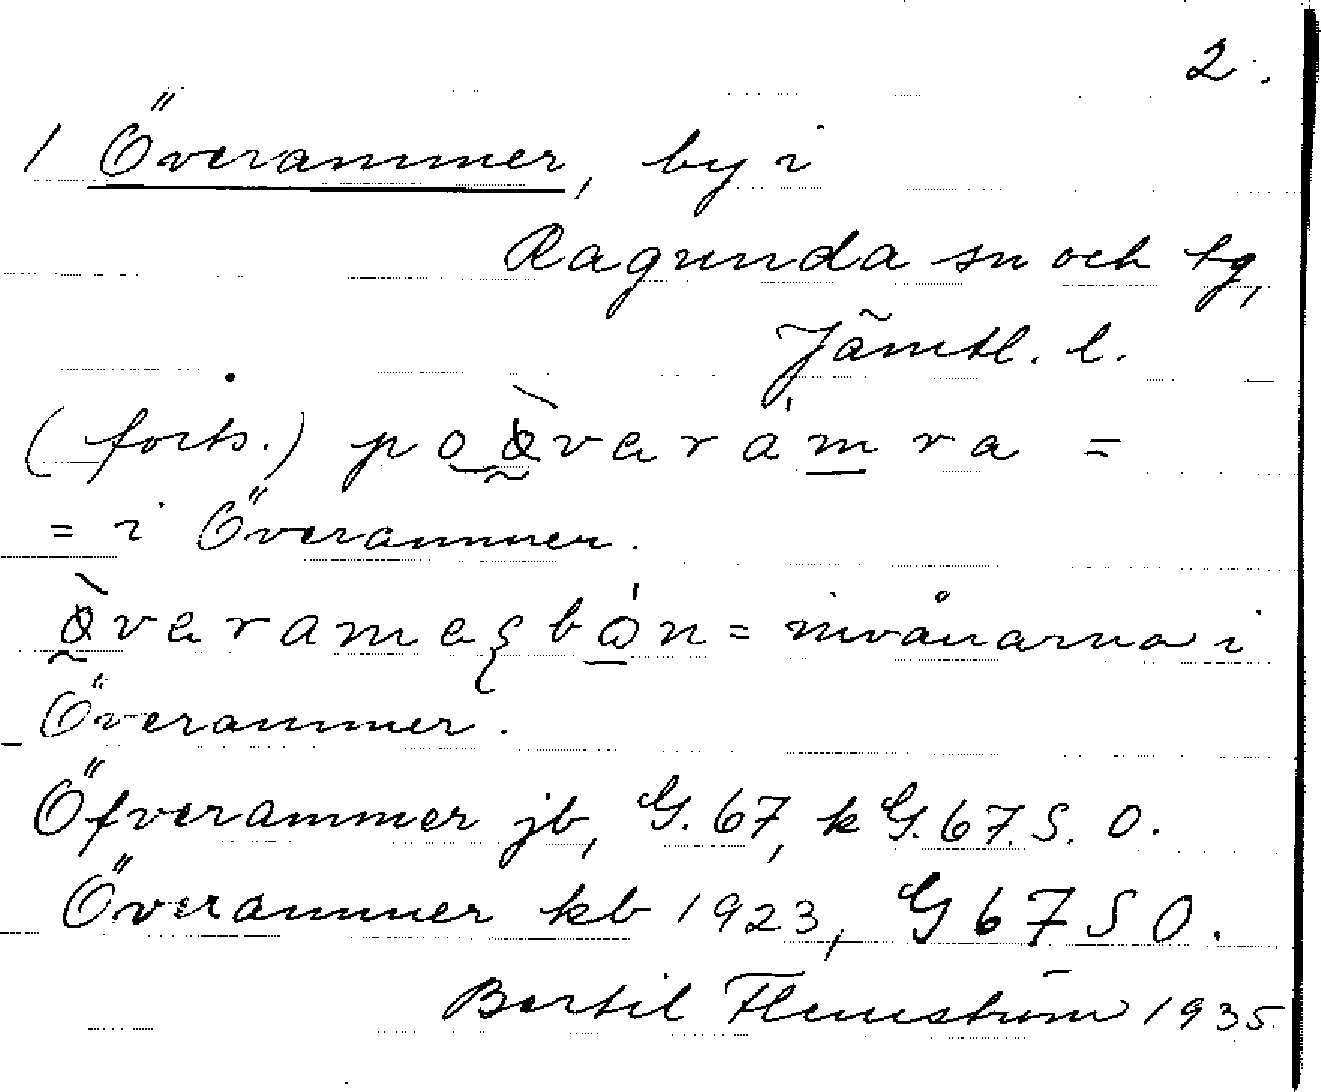 2.
1 Överammer, by i
Ragunda sn och tg,
Jämtl. l.
(forts.) po òvarám ra =
= i Överammer.
òveramesbón = invånarna i
Överammer.
Öfverammer jb, G. 67, k G. 67. S. O.
Överammer kb 1923, G 67 S O.
Bertil Flemström 1935